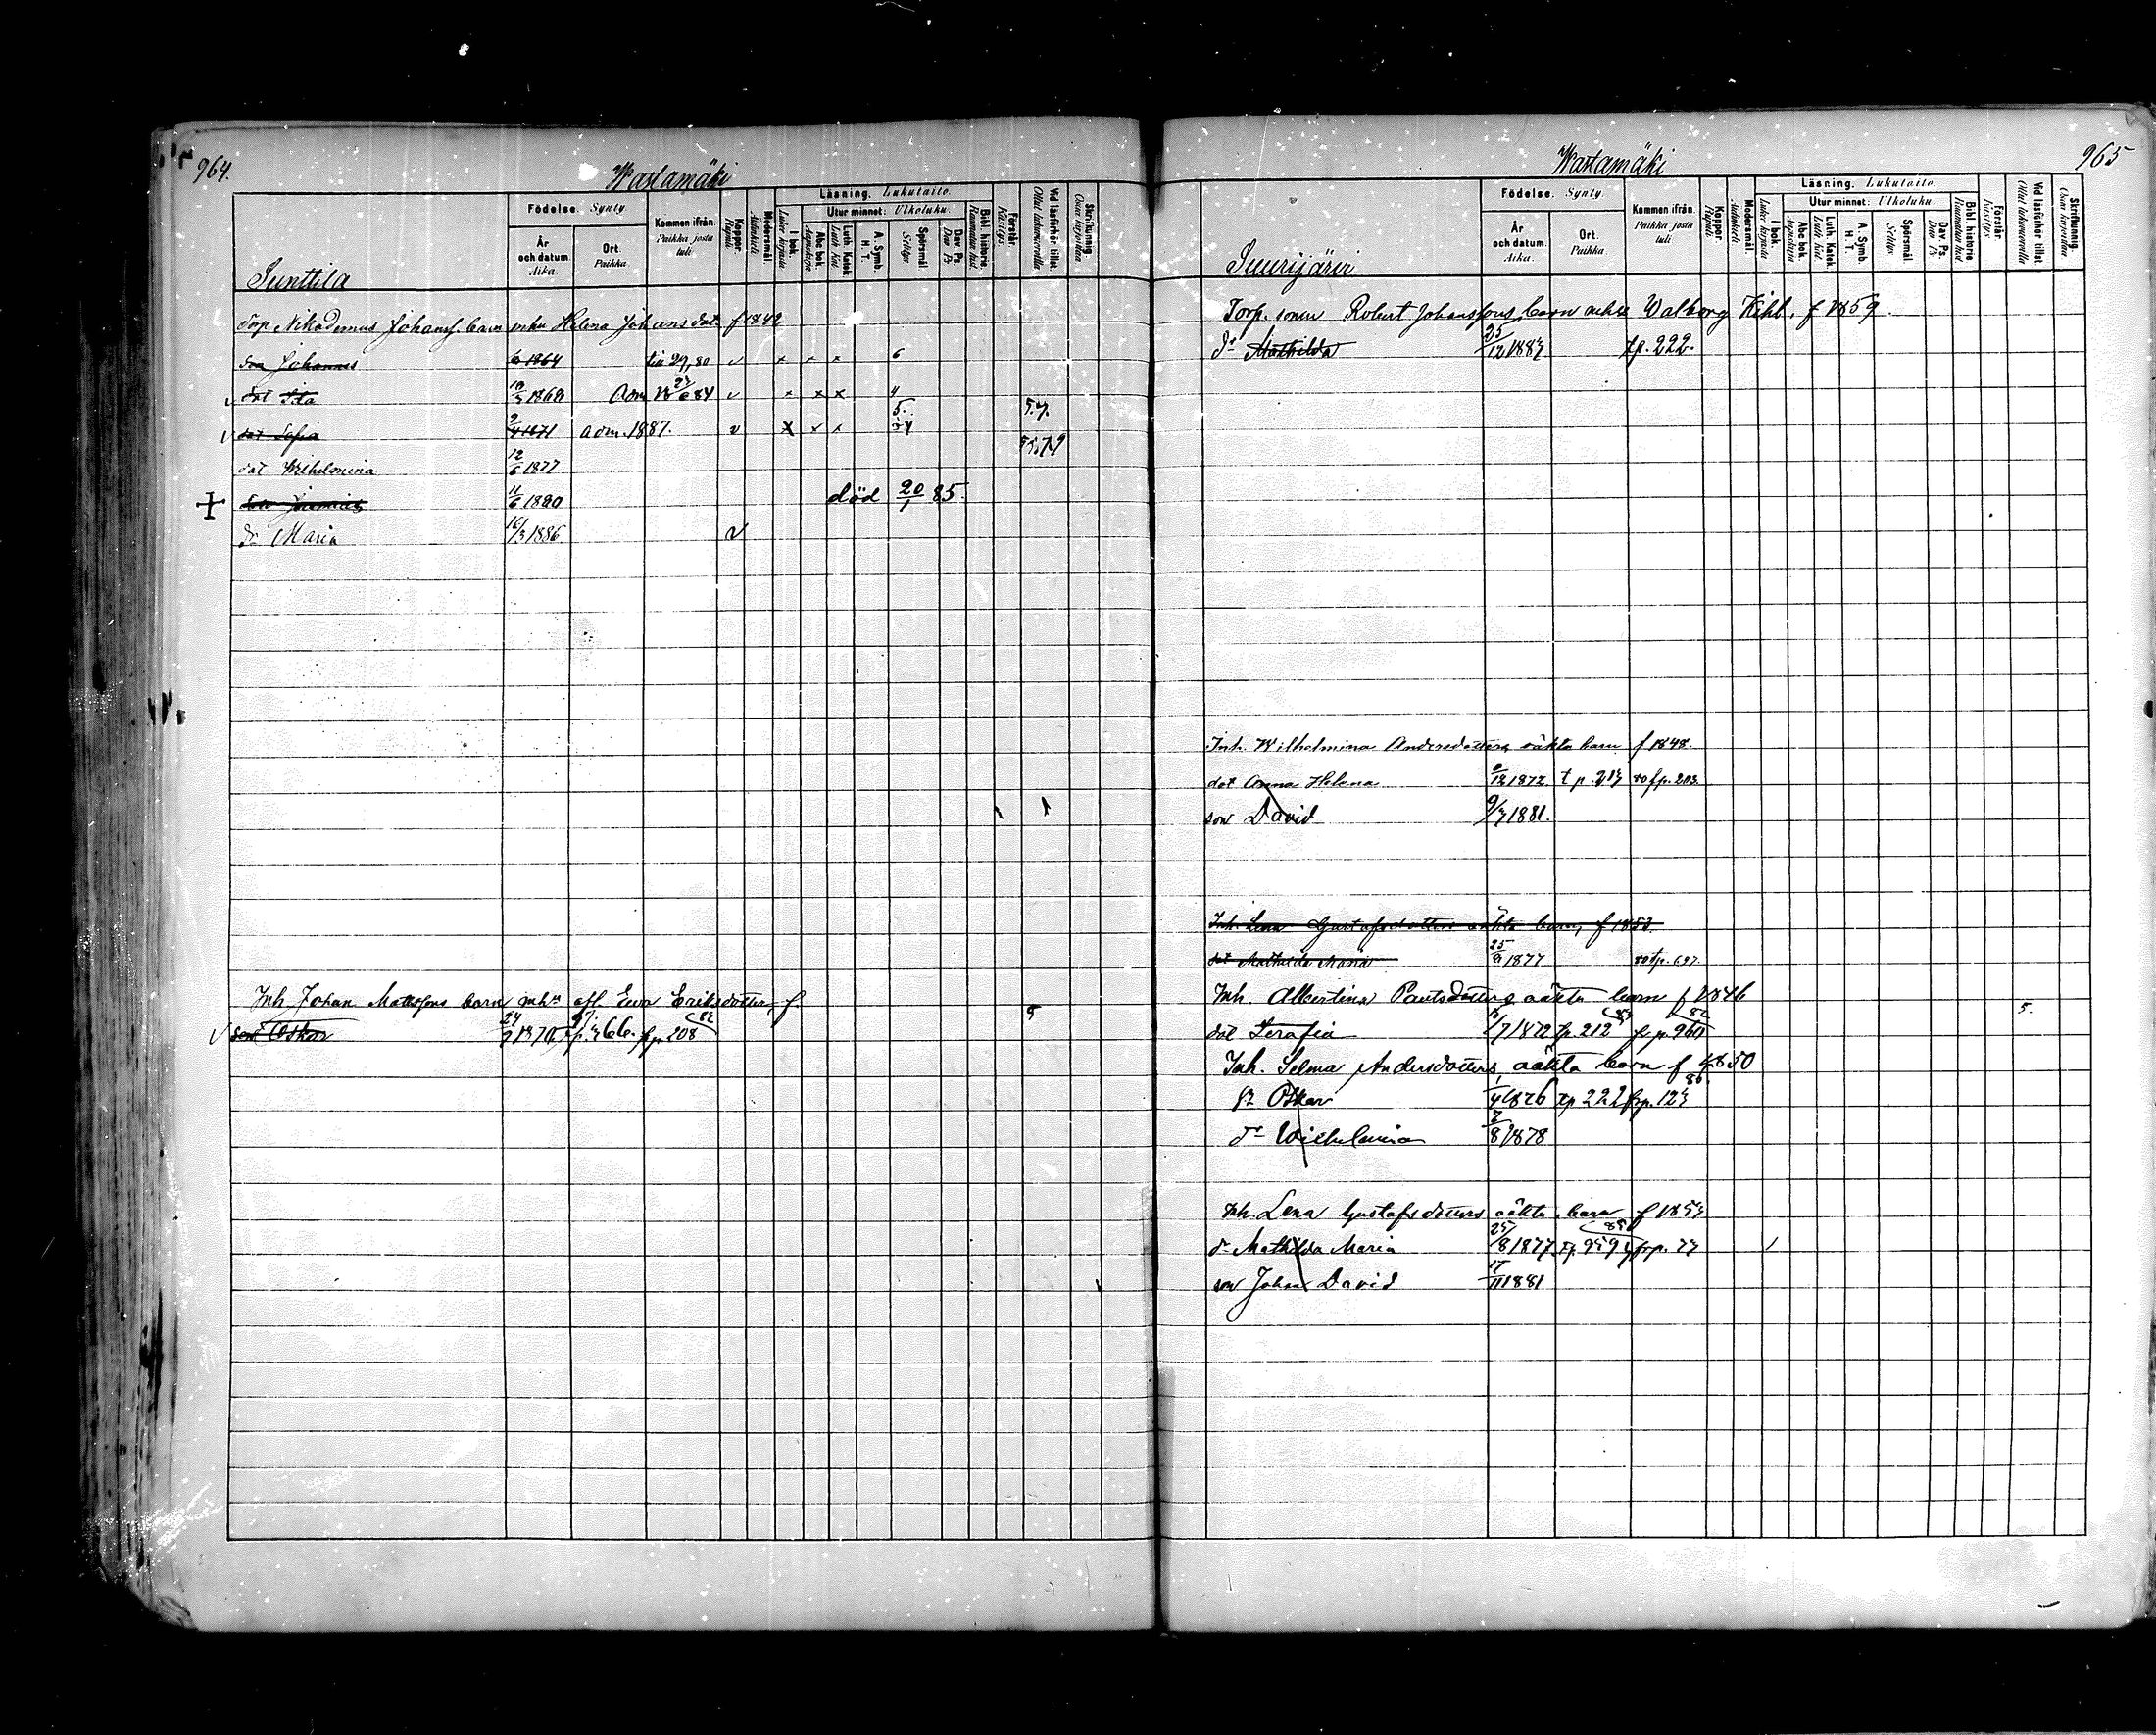 964.
Wastamäki
Födelse. Synty.
År och datum. Aika.
Ort. Paikka.
Kommen ifrån. Paikka josta tuli
Koppor. Rupuli
Modersmål. Äidinkieli
Läsning. Lukutaito.
I bok. Lukee kirjasta
Utur minnet: Ulkoluku.
Abc bok. Aapiskirja
Luth. Katek. Luth. Kat.
A. Symb. H. T.
Spörsmål Selitys
Dav. Ps. Dav. Ps.
Bibl. historie.
Förstår. Käsitys
Vid läsförhör tillst. Ollut lukuvuorolla
Skrifkunnig. Osaa kirjoittaa
Junttila
Torp Nikodemus Johanss. barn mhu Helena Johansdot. f 1842
son Johannes 6 1864 v x x x 6
v dot Ita 10/5 1868 Adm 23/6 84 v x x x 4
5. 5.7.
v dot Sofia 2/4 1871 adm. 1887. v x x x
dot Wilhelmina 12/6 1877
+ 11/6 1880 död 20/1 85.
dr Maria 16/3 1886. v
Inh Johan Mattssons barn mhu afl. Ewa Eriksdotter, f.
v son Oskar 24/9 1870 p. 66. frp. 208 82
965
Wastamäki
Födelse. Synty.
År och datum. Aika.
Ort. Paikka.
Kommen ifrån. Paikka josta tuli
Koppor. Rupuli
Modersmål. Äidinkieli
Läsning. Lukutaito.
I bok. Lukee kirjasta
Utur minnet: Ulkoluku.
Abc bok. Aapiskirja
Luth. Katek.
A. Symb. H. T.
Spörsmål. Selitys
Dav. Ps. Dav. Ps.
Bibl. historie
Förstår. Käsitys
Vid läsförhör tillst. Ollut lukuvuorolla
Skrifkunnig. Osaa kirjoittaa
Suurijärvi
Torp. sonen Robert Johanssons barn mhse Walborg Kihl. f 1859.
dr Mathilda 25/12 1883 tp. 222.
Inh. Wilhelmina Andersdotters oäkta barn f 1848.
dot Anna Helena 9/12 1872. t p. 213 80 fp. 203.
son David 9/3 1881.
Inh. Lena Gustafsdotters oäkta barn, f 1853.
dot Mathilda Maria 25/8 1877 80 fp. 697.
Inh. Albertina Paulsdotters oäkta barn f 1846
5.
dot Serafia 7 1872 tp. 212 83 frp. 960
Inh. Selma Andersdotters, oäkta barn f 1850
sr Oskar 1/4 1876 tp 222 frp. 123 86.
dr Wilhelmina 7/8 1878
Inh. Lena Gustafsdotters oäkta barn f 1853
dr Mathilda Maria 25/8 1877 tp. 959 frp. 73 85
son Johan David 17/11 1881